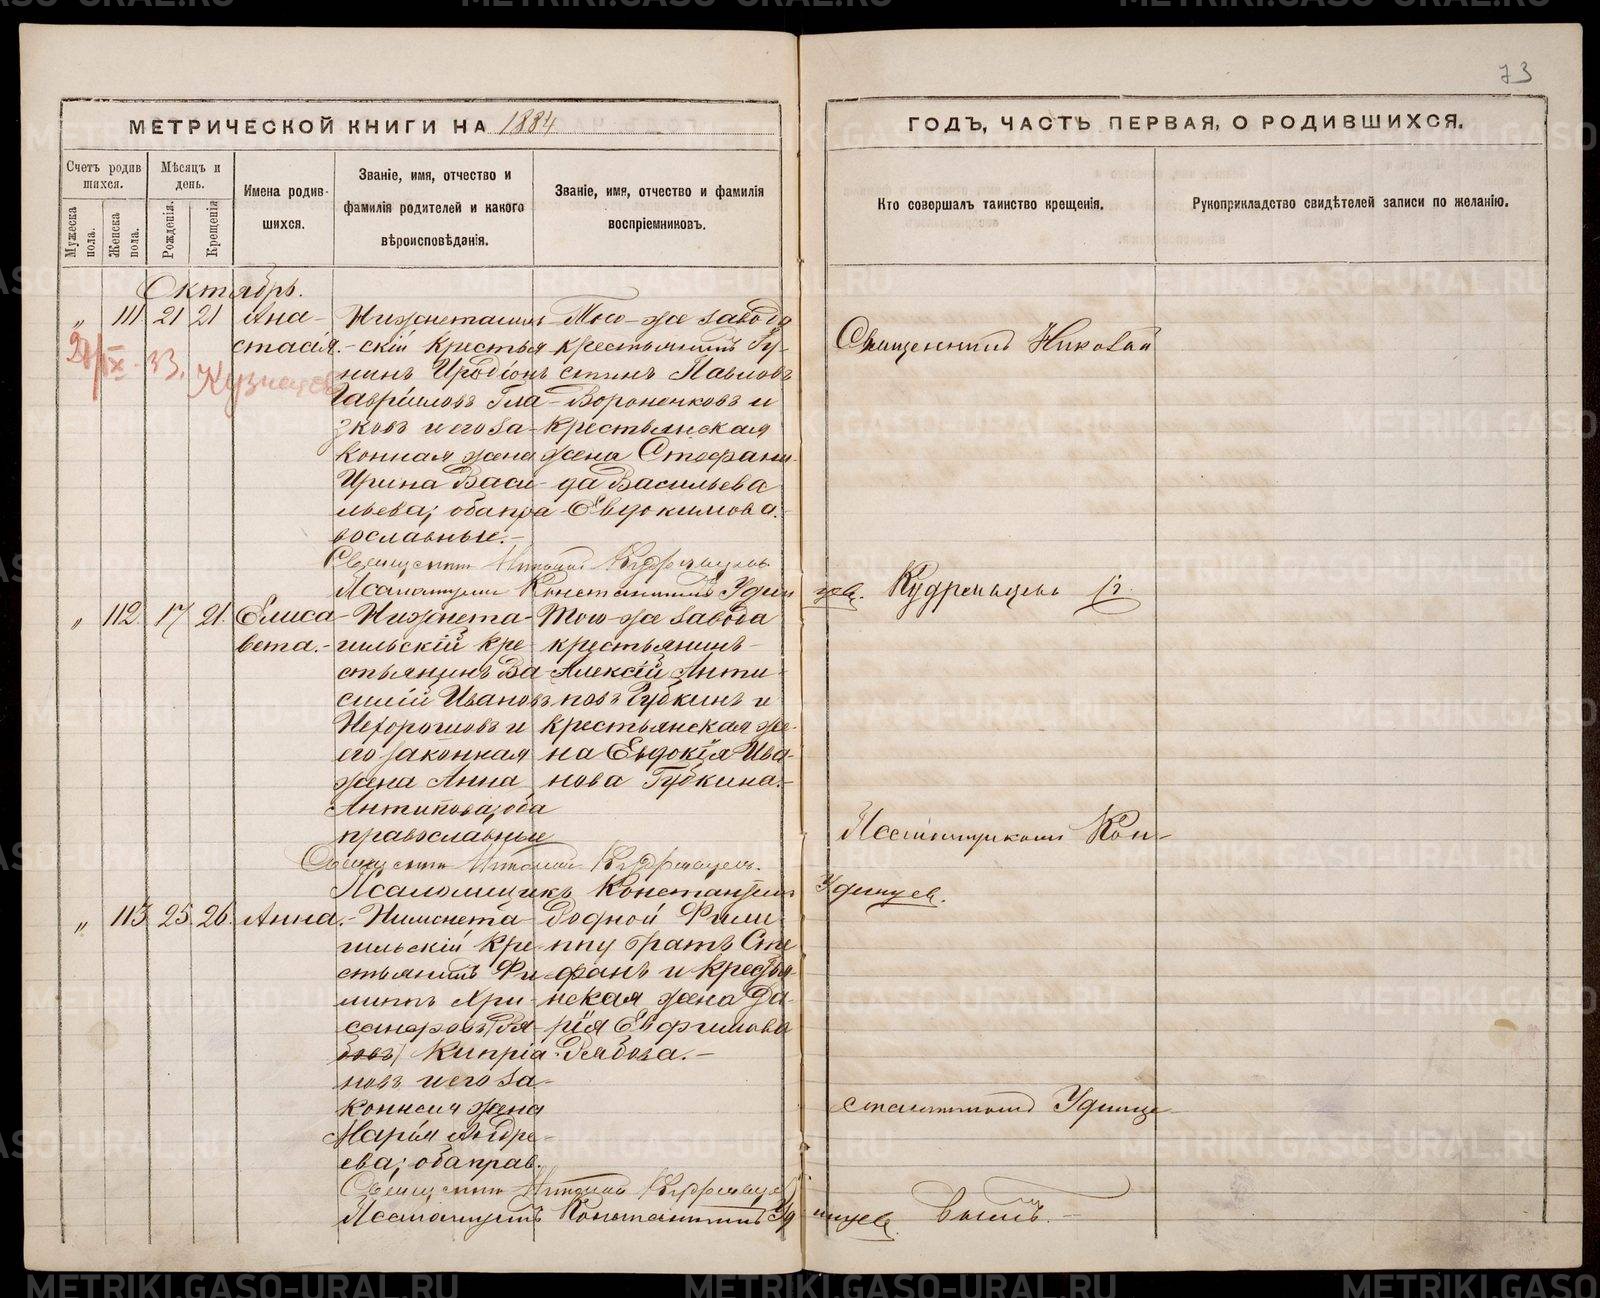 73
МЕТРИЧЕСКОЙ КНИГИ НА 1884
ГОДЪ, ЧАСТЬ ПЕРВАЯ, О РОДИВШИХСЯ.
Счетъ родив
шихся.
Мужеска
пола.
Женска
пола.
Мѣсяцъ и
день.
Рожденія.
Крещенія
Имена родив-
шихся.
Званіе, имя, отчество и
фамилія родителей и какого
вѣроисповѣданія.
Званіе, имя, отчество и фамилія
воспріемниковъ.
Кто совершалъ таинство крещенія.
Рукоприкладство свидѣтелей записи по желанію.
Октябрь.
" 111 21 21
Ана-
стасія.-
33. Кузнецов
Нижнетагиль-
скій крестья
нинъ Иродіонъ
Гавріиловъ Гла-
зковъ и его за-
конная жена
Ирина Васи-
льева; оба пра-
вославные.-
Того-же завода
крестьянинъ Іу-
стинъ Павловъ
Вороненковъ и
крестьянская
жена Стефани-
да Васильева
Евдокимова.
Священникъ Николай Кудрявцевъ
Псаломщикъ Константинъ Удинцев.
" 112 17 21.
Елиса-
вета.-
Нижнета-
гильскій кре-
стьянинъ Ва-
силій Ивановъ
Нехорошовъ и
его законная
жена Анна
Антипова; оба
православные
Того-же завода
крестьянинъ
Алексій Анти-
повъ Губкинъ и
крестьянская же-
на Евдокія Ива-
нова Губкина.-
Священникъ Николай Кудрявцевъ.
Псаломщикъ Константинъ Удинцев.
" 113 25. 26.
Анна.-
Нижнета-
гильскій кре-
стьянинъ Фи-
липпъ Хри-
санфовъ (Ря-
бовъ) Кипріа-
новъ и его за-
конная жена
Марія Андре-
ева; оба прав.
Родной Фили-
ппу братъ Сте
фанъ и крестья
нская жена Да-
рія Евфимова
Рябова.-
Священникъ Николай Кудрявцев
Псаломщикъ Константинъ Удинцев
Священникъ Николай
Кудрявцевъ
Псаломщикомъ Кон-
стантиномъ Удинце
вымъ.-
METRIKI.GASO-URAL.RU